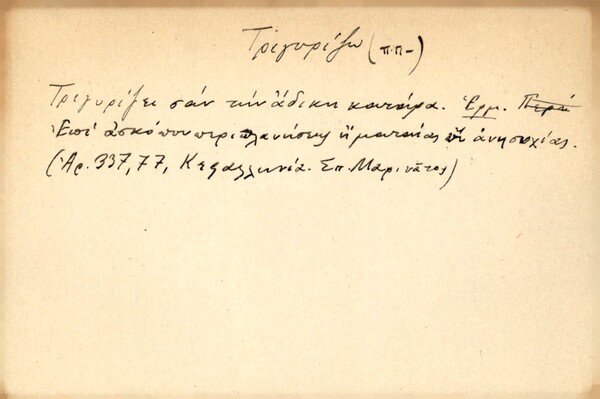 Τριγυρίζω (π.π-)
Τριγυρίζει σάν τήν ἄδικη κατάρα. Ἑρμ. Περί
Ἐπί ἀσκόπου περιπλανήσεως ἤ ματαίας ἀνησυχίας.
(Ἀρ. 337, 77, Κεφαλληνία. Σπ. Μαρινᾶτος)